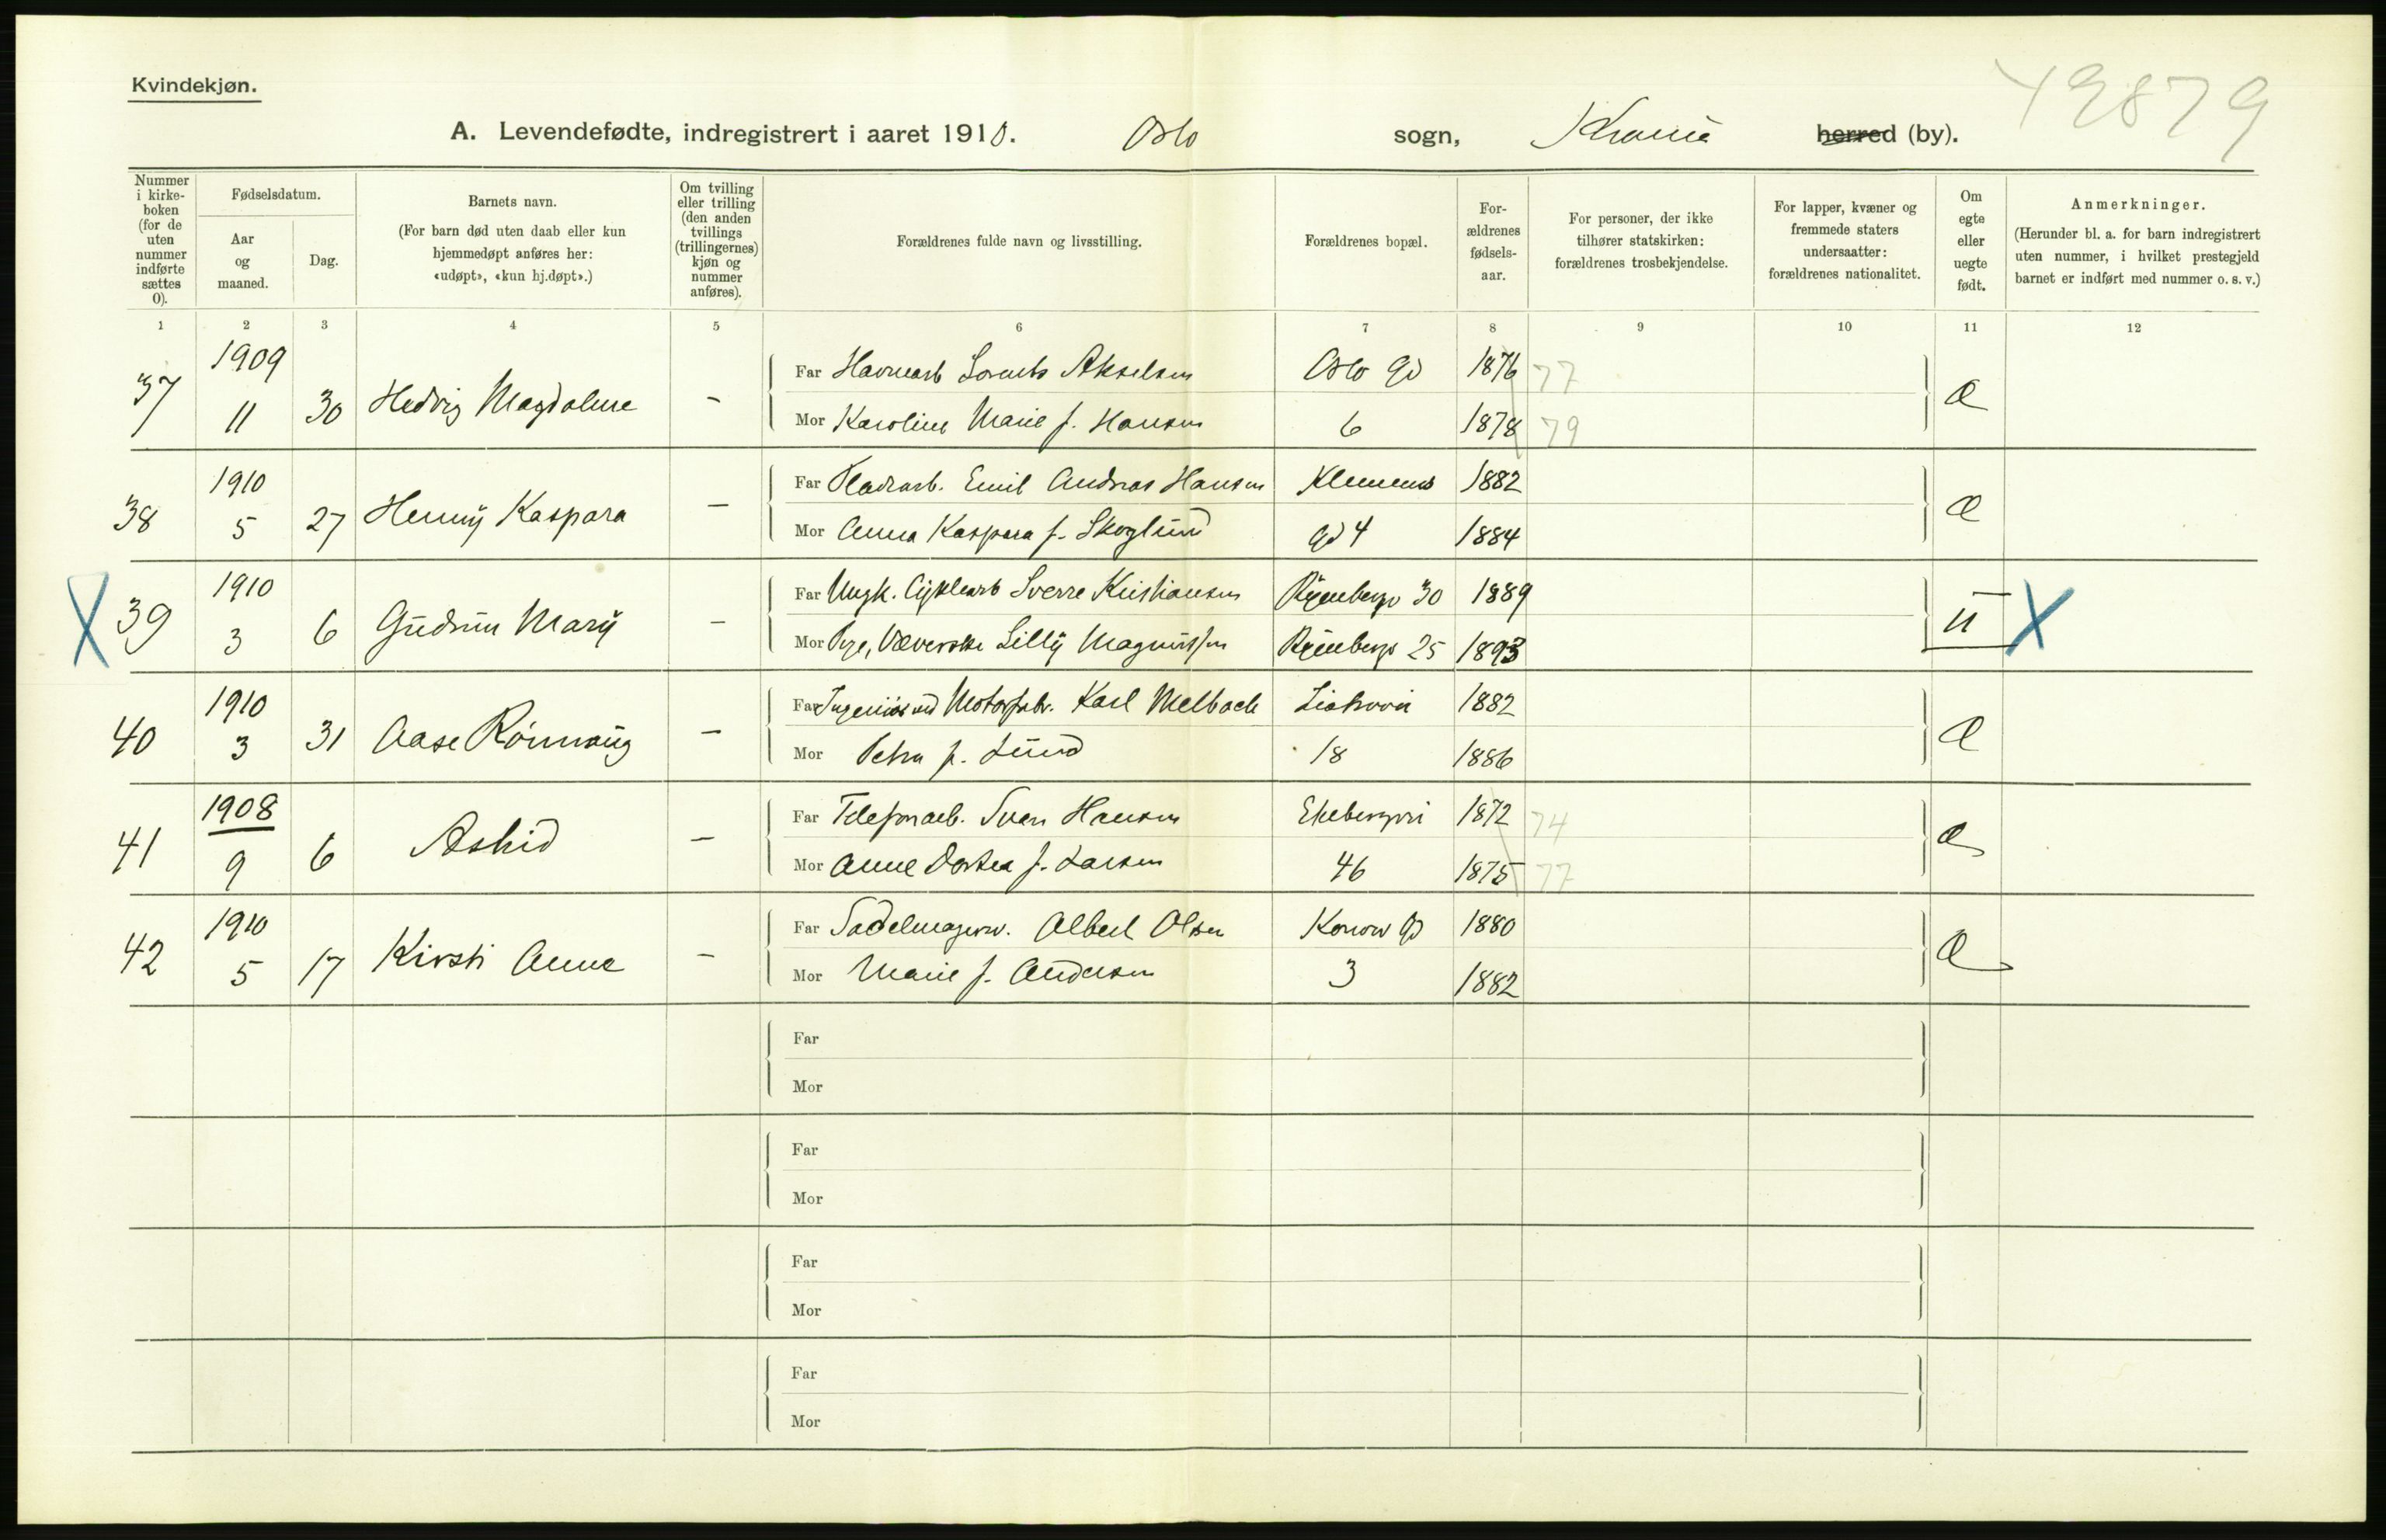 Kvindekjøn.
49879
A. Levendefødte, indregistrert i aaret 1910. Oslo sogn, Krania herred (by).
Nummer i kirke-boken (for de uten nummer indførte sættes 0).
Fødselsdatum.
Aar og maaned.
Dag.
Barnets navn.
(For barn død uten daab eller kun hjemmedøpt anføres her: «udøpt», «kun hj.døpt».)
Om tvilling eller trilling (den anden tvillings (trillingernes) kjøn og nummer anføres).
Forældrenes fulde navn og livsstilling.
Forældrenes bopæl.
For-ældrenes fødsels-aar.
For personer, der ikke tilhører statskirken: forældrenes trosbekjendelse.
For lapper, kvæner og fremmede staters undersaatter: forældrenes nationalitet.
Om egte eller uegte født.
Anmerkninger.
(Herunder bl. a. for barn indregistrert uten nummer, i hvilket prestegjeld barnet er indført med nummer o. s. v.)
1 2 3 4 5 6 7 8 9 10 11 12
37 1909 11 30 Hedvig Magdalene -
Far Havnearb Lorents Akselsen Oslo gd 1876 77
Mor Karoline Marie f. Hansen 6 1878 79
Æ
38 1910 5 27 Henny Kaspara -
Far Pladsarb. Emil Andreas Hansen Klemens 1882
Mor Anna Kaspara f. Skoglund gd 4 1884
Æ
X 39 1910 3 6 Gudrun Mary -
Far Ungk. Cyklearb Sverre Kristiansen Ryenbergs 30 1889
Mor Pige, Væverske Lilly Magnussen Ryenbergs 25 1893
U X
40 1910 3 31 Aase Rönnaug -
Far Ingeniör ved Motorfabr. Karl Melbach 1882
Mor Petra f. Lund 18 1886
Æ
41 1908 9 6 Astrid -
Far Telefonarb. Sven Hansen Ekebergvei 1872 74
Mor Anne Dortea f. Larsen 46 1875 77
Æ
42 1910 5 17 Kirsti Anna -
Far Sadelmagersv. Albert Olsen Konow gd 1880
Mor Marie f. Andersen 3 1882
Æ
Far
Mor
Far
Mor
Far
Mor
Far
Mor